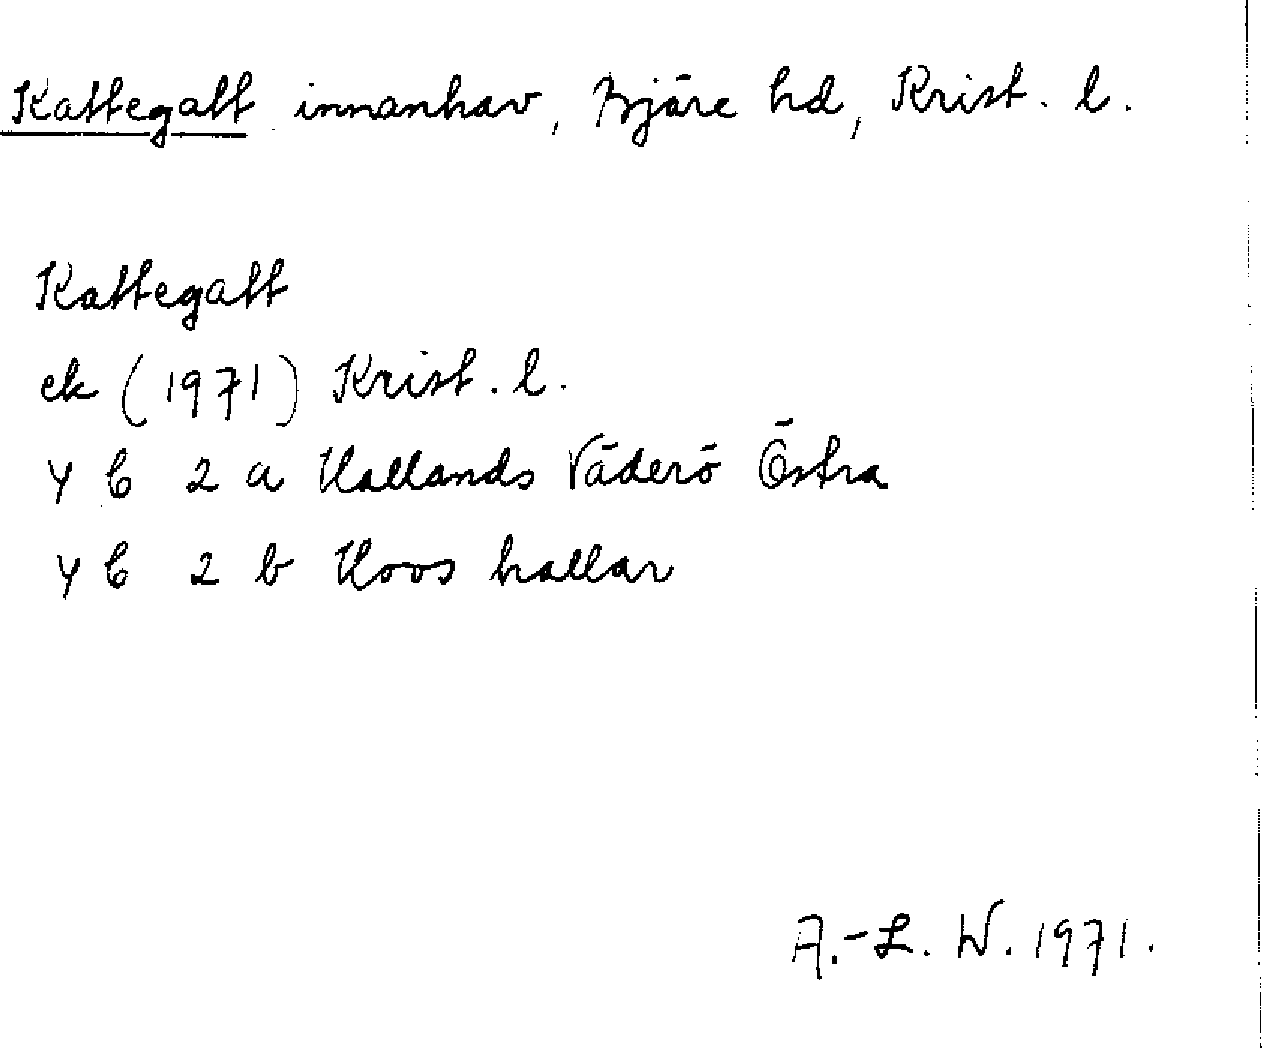 Kattegatt innanhav, Bjäre hd, Krist. l.
Kattegatt
ek (1971) Krist. l.
4 C 2 a Hallands Väderö Östra
4 C 2 b Hovs hallar
A.-L. W. 1971.